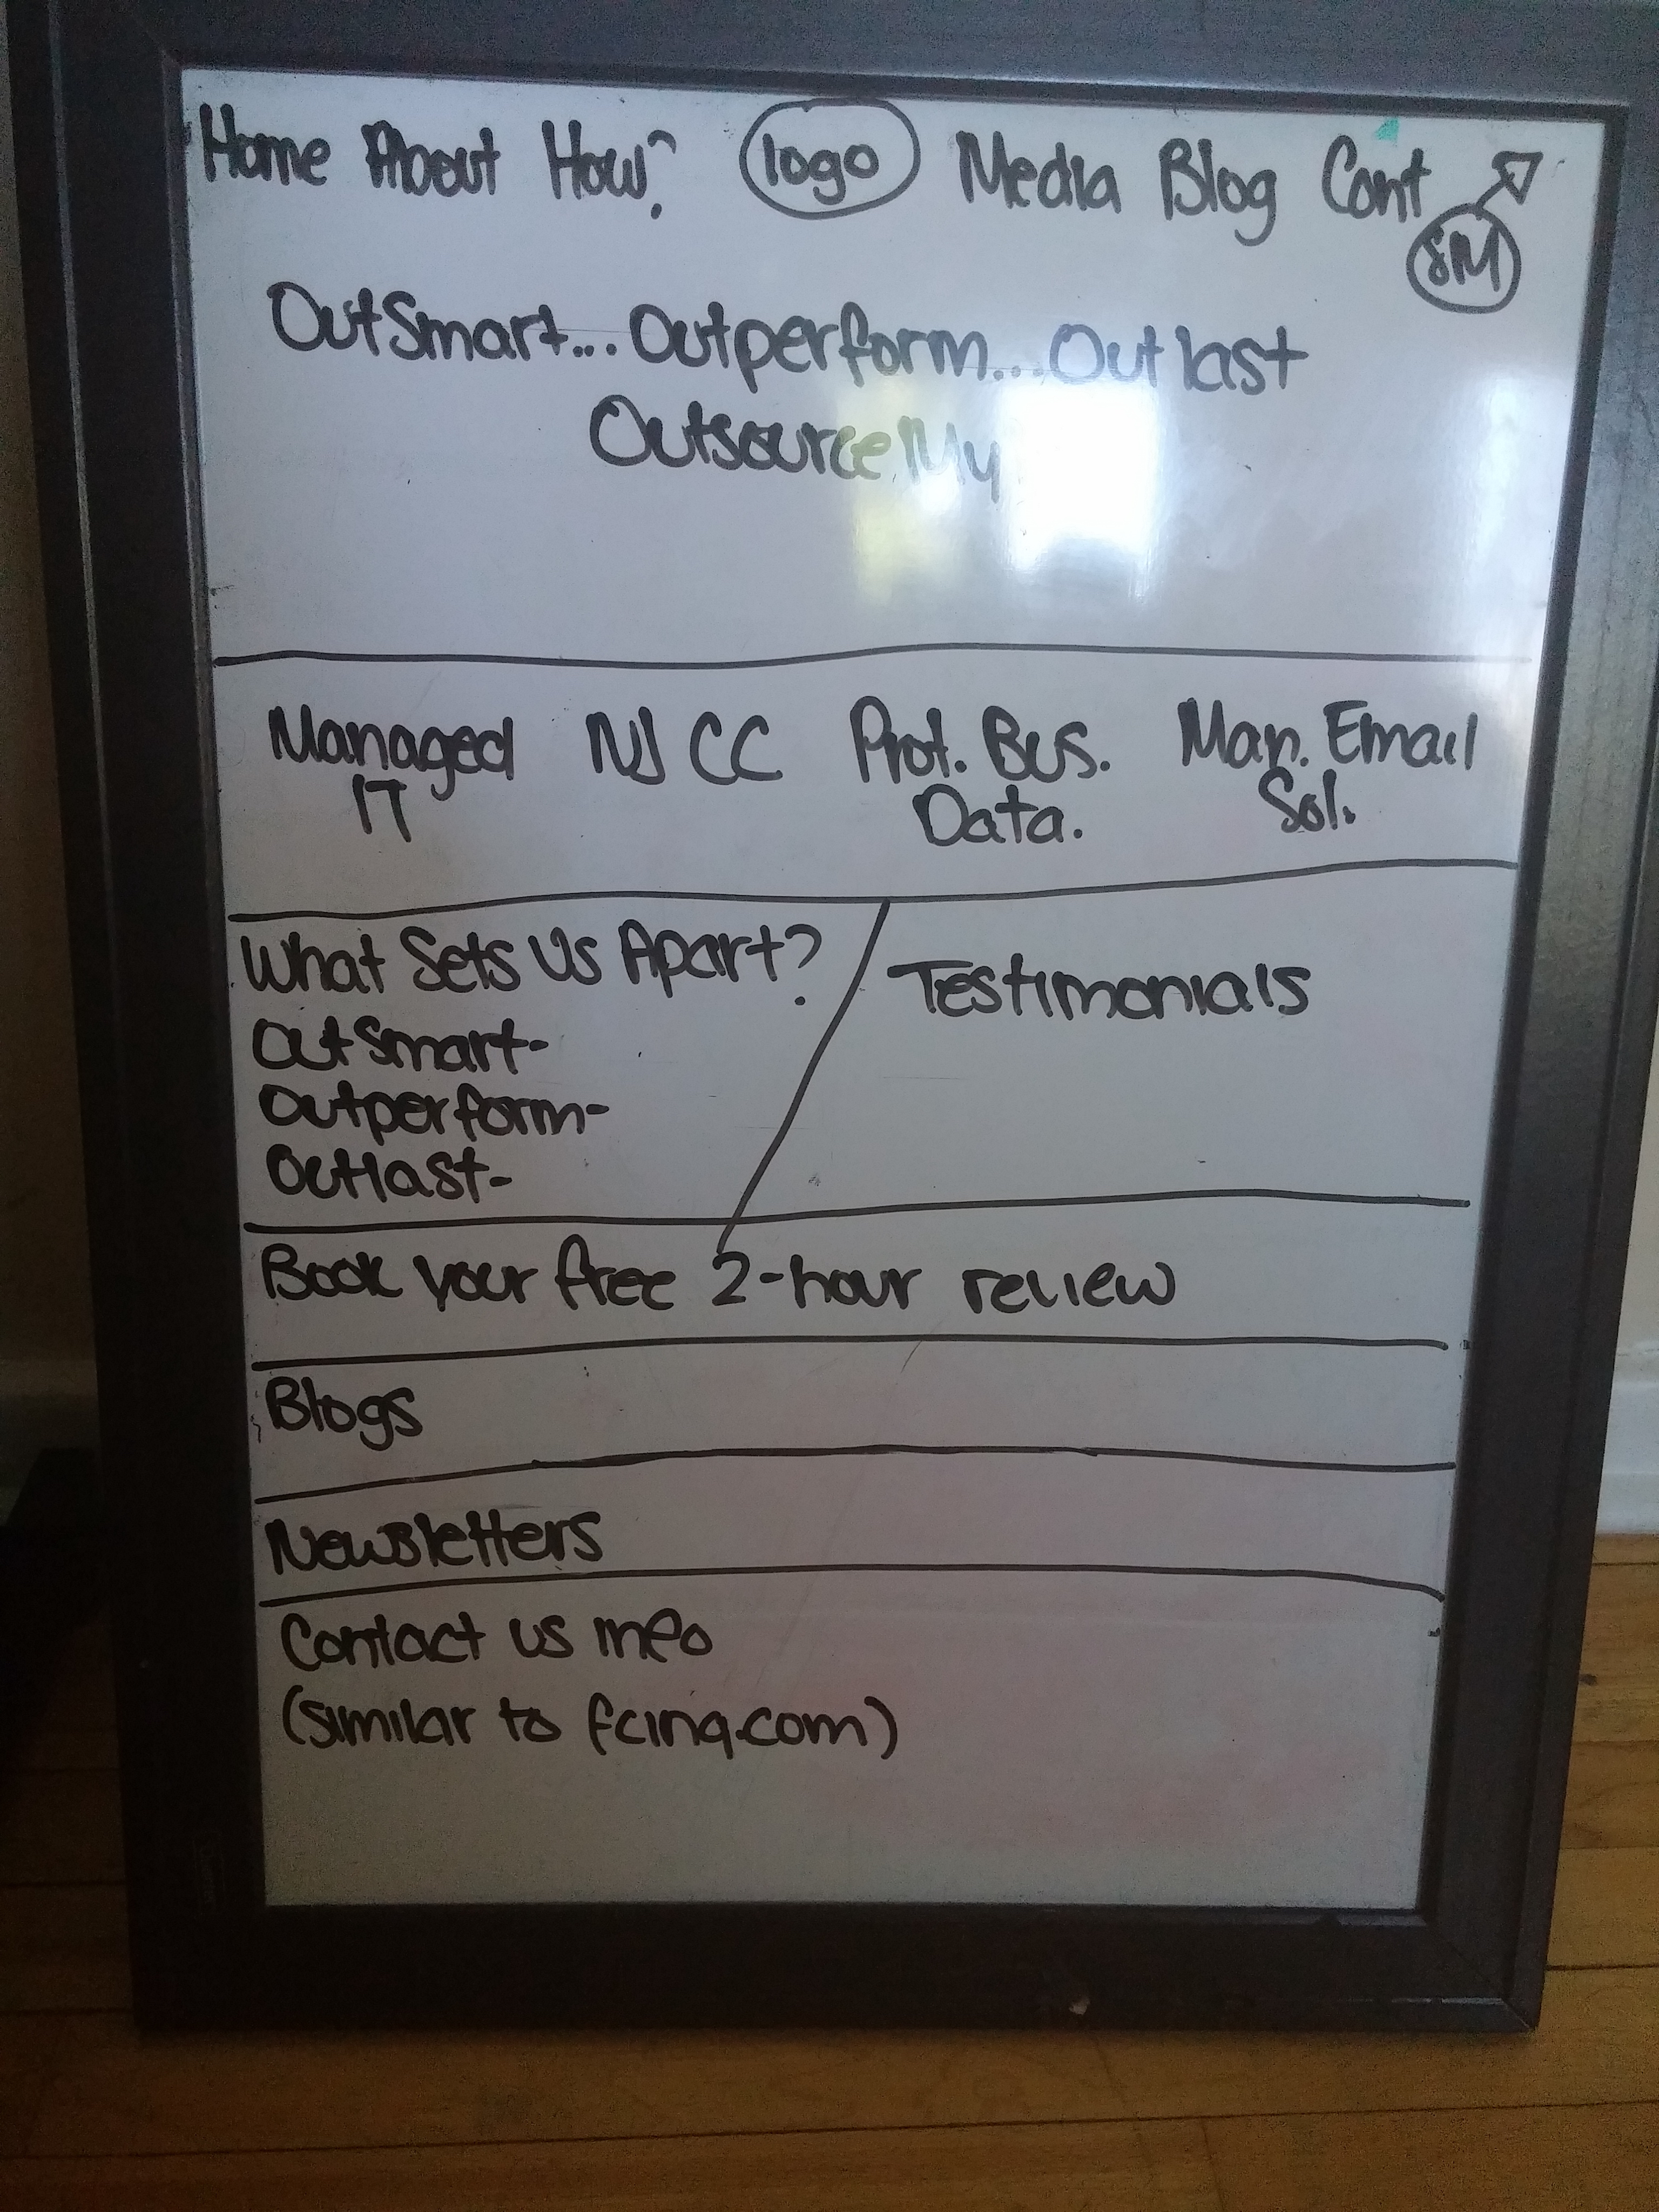 Home About How? logo Media Blog Cont
SM
OutSmart... Outperform... Outlast
OutsourceMy
Managed IT
NJ CC
Prot. Bus. Data.
Man. Email Sol.
What Sets Us Apart?
OutSmart-
Outperform-
Outlast-
Testimonials
Book your free 2-hour review
Blogs
Newsletters
Contact us info
(similar to fcinq.com)